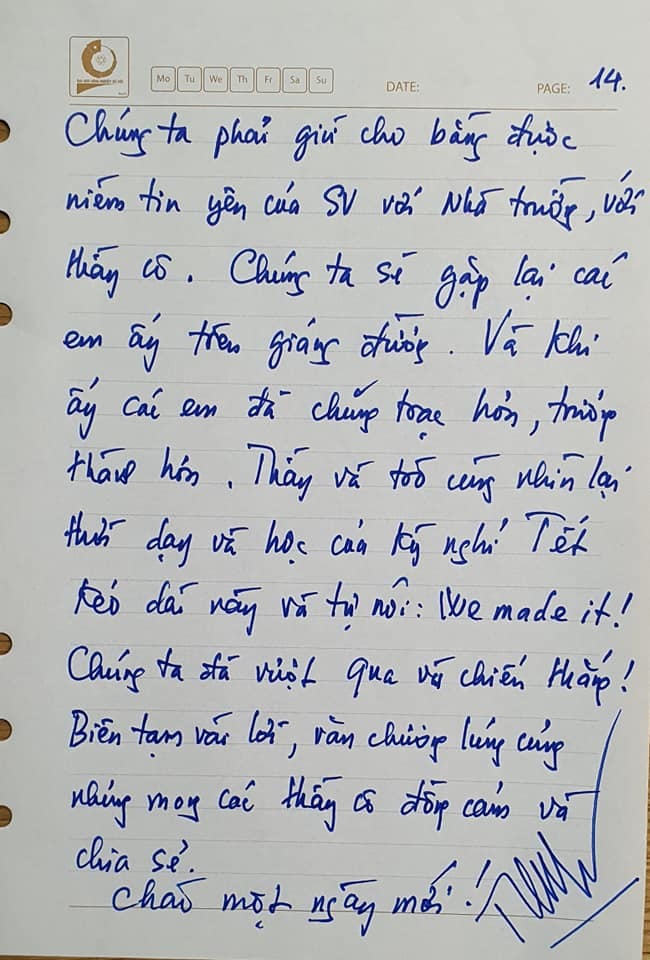 Mo Tu We Th Fr Sa Su DATE: PAGE: 14.
Chúng ta phải giữ cho bằng được
niềm tin yêu của SV với Nhà trường, với
thầy cô. Chúng ta sẽ gặp lại các
em ấy trên giảng đường. Và khi
ấy các em đã chững trạc hơn, trưởng
thành hơn. Thầy và trò cùng nhìn lại
thời dạy và học của kỳ nghỉ Tết
kéo dài này và tự nói: We made it!
Chúng ta đã vượt qua và chiến thắng!
Biên tạm vài lời, văn chương lủng củng
nhưng mong các thầy cô đồng cảm và
chia sẻ.
Chào một ngày mới!